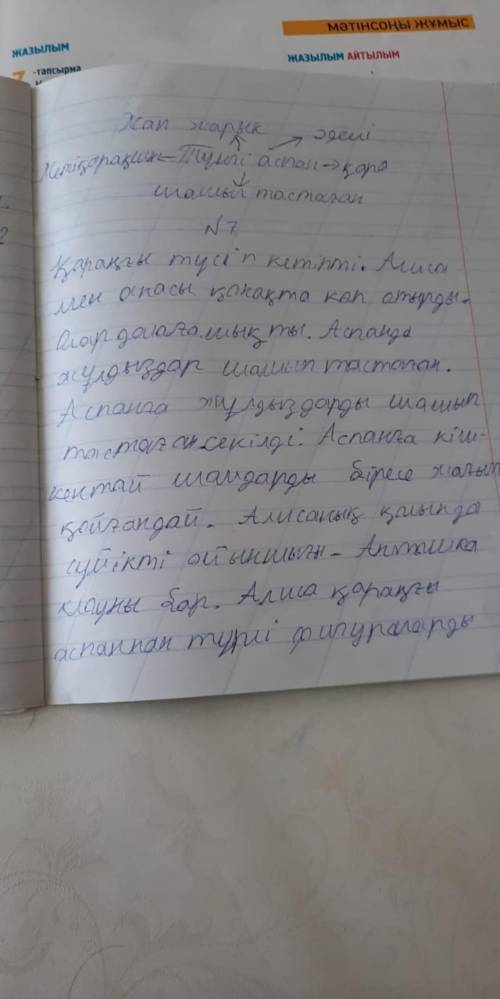 МӘТІНСОҢЫ ЖҰМЫС
ЖАЗЫЛЫМ
ЖАЗЫЛЫМ АЙТЫЛЫМ
7 -тапсырма
Жап жарық әдемі
Жетіқарақшы Түнгі аспан қара
шашып тастаған
N 7
Қараңғы түсіп кетіпті. Алиса
мен апасы қонақта көп отырды.
Олар далаға шықты. Аспанда
жұлдыздар шашып тастаған.
Аспанға жұлдыздарды шашып
тастаған секілді. Аспанға кіш-
кентай шамдарды біресе жағып
қойғандай. Алисаның қолында
сүйікті ойыншығы - Антошка
клоуны бар. Алиса қараңғы
аспаннан түрлі фигураларды